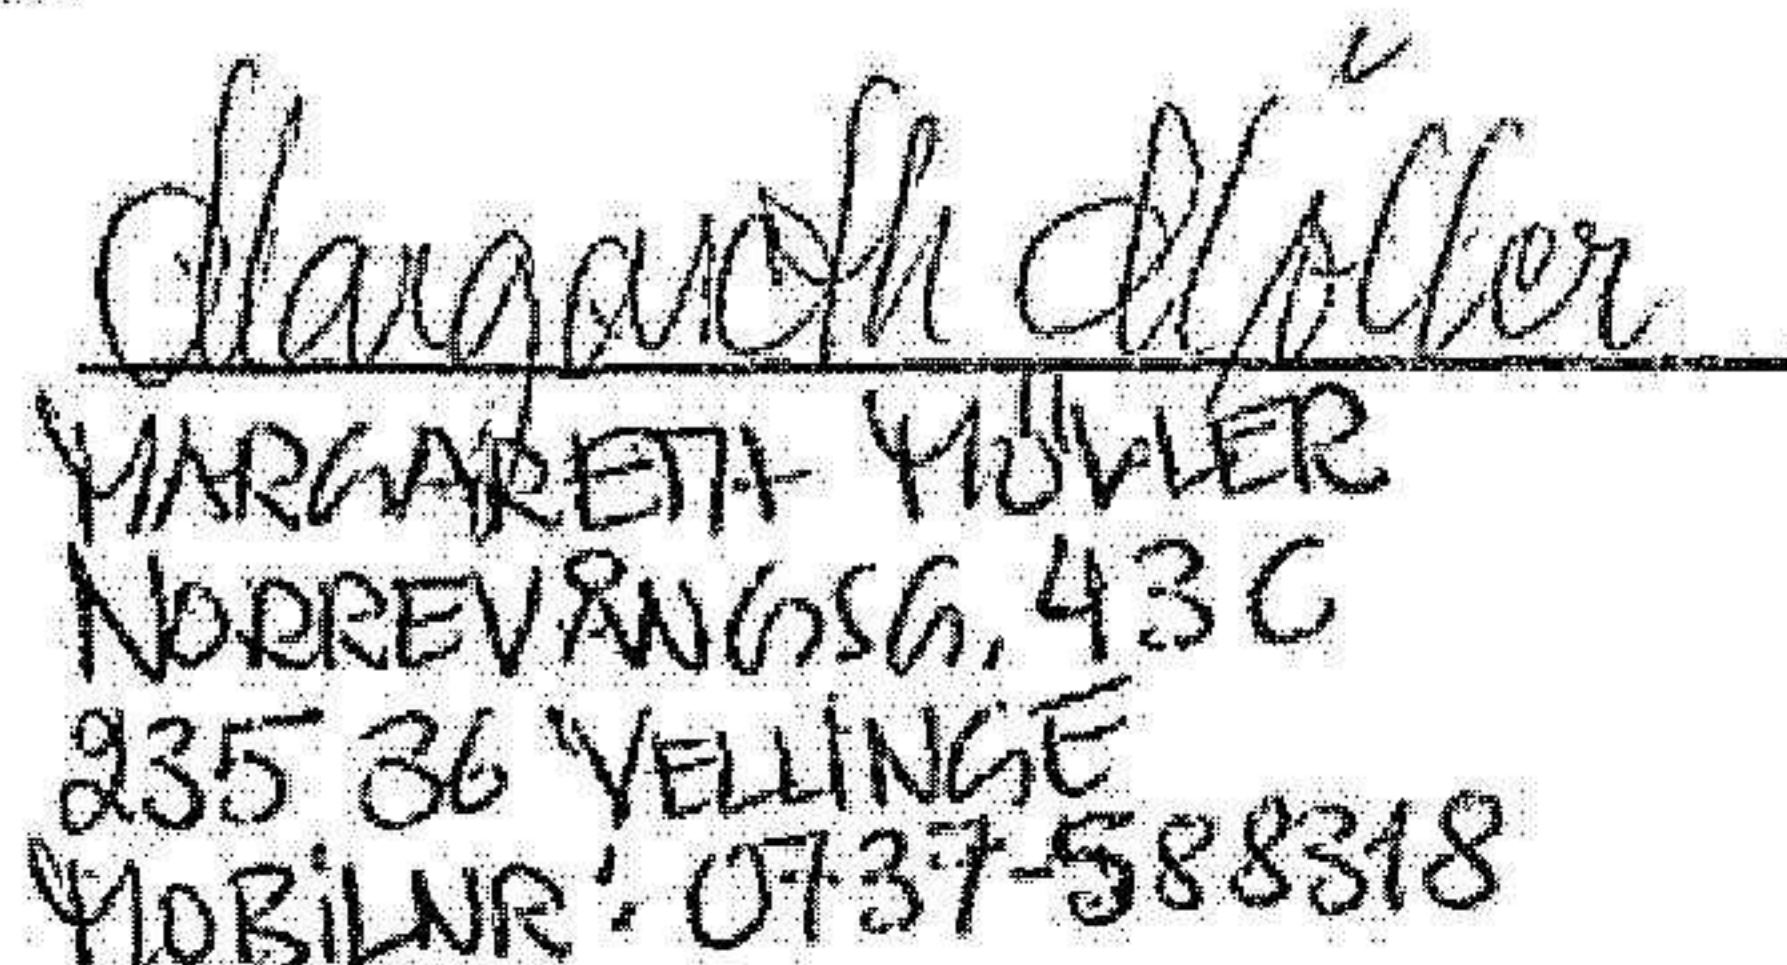 Margareth Müller
MARGARETH MÜLLER
NORREVÅNGSG. 43 C
235 36 VELLINGE
MOBILNR: 0737-588318